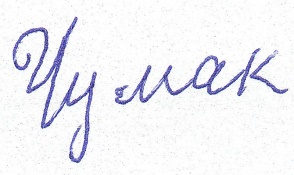 Чумак